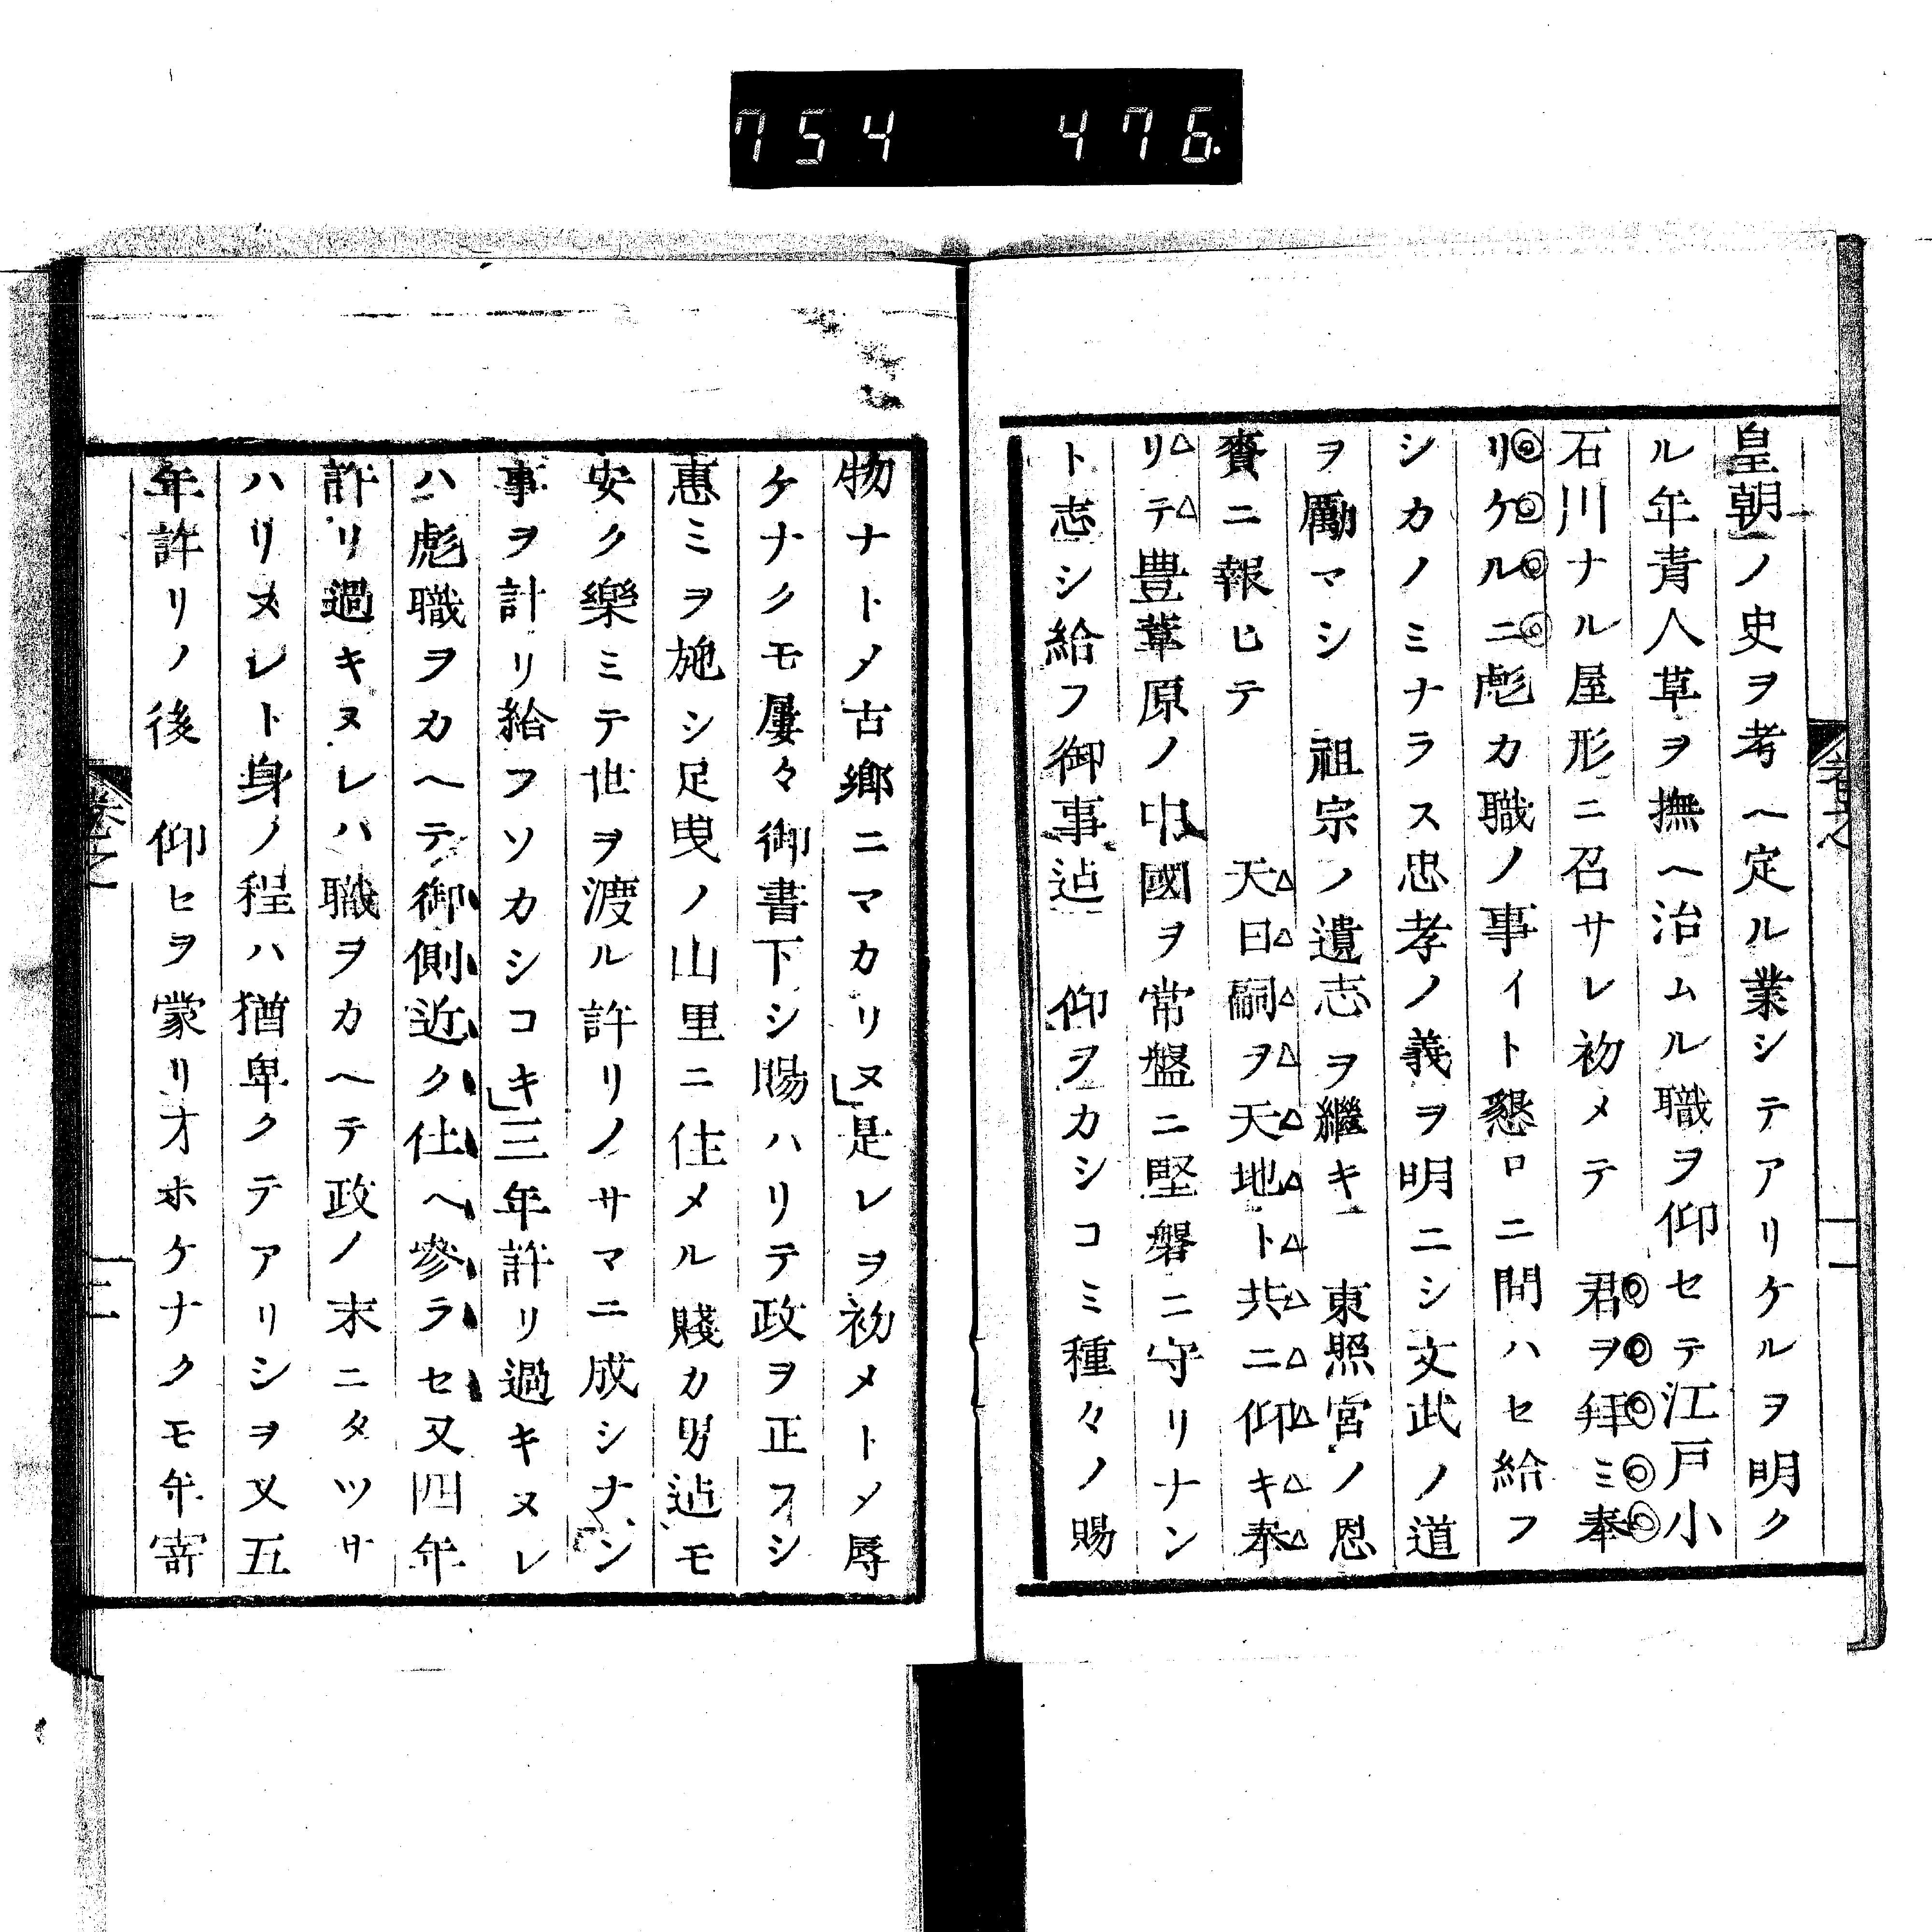 754 476
皇朝ノ史ヲ考ヘ定ル業シテアリケルヲ明ク
ル年青人草ヲ撫ヘ治ムル職ヲ仰セテ江戸小
石川ナル屋形ニ召サレ初メテ 君ヲ拜ミ奉
リケルニ彪カ職ノ事イト懇ロニ問ハセ給フ
シカノミナラス忠孝ノ義ヲ明ニシ文武ノ道
ヲ勵マシ 祖宗ノ遺志ヲ繼キ 東照宮ノ恩
賚ニ報ヒテ 天日嗣ヲ天地ト共ニ仰キ奉
リテ豊葦原ノ中國ヲ常盤ニ堅磐ニ守リナン
ト志シ給フ御事迠 仰ヲカシコミ種々ノ賜
物ナトメ古郷ニマカリヌ」是レヲ初メトメ辱
ケナクモ屡々御書下シ賜ハリテ政ヲ正フシ
惠ミヲ施シ足曳ノ山里ニ住メル賤カ男迠モ
安ク樂ミテ世ヲ渡ル許リノサマニ成シナン
事ヲ計リ給フソカシコキ」三年許リ過キヌレ
ハ彪職ヲカヘテ御側近ク仕ヘ參ラセ又四年
許リ過キヌレハ職ヲカヘテ政ノ末ニタツサ
ハリヌレト身ノ程ハ猶卑クテアリシヲ又五
年許リノ後 仰ヒヲ蒙リオホケナクモ年寄
卷之
三